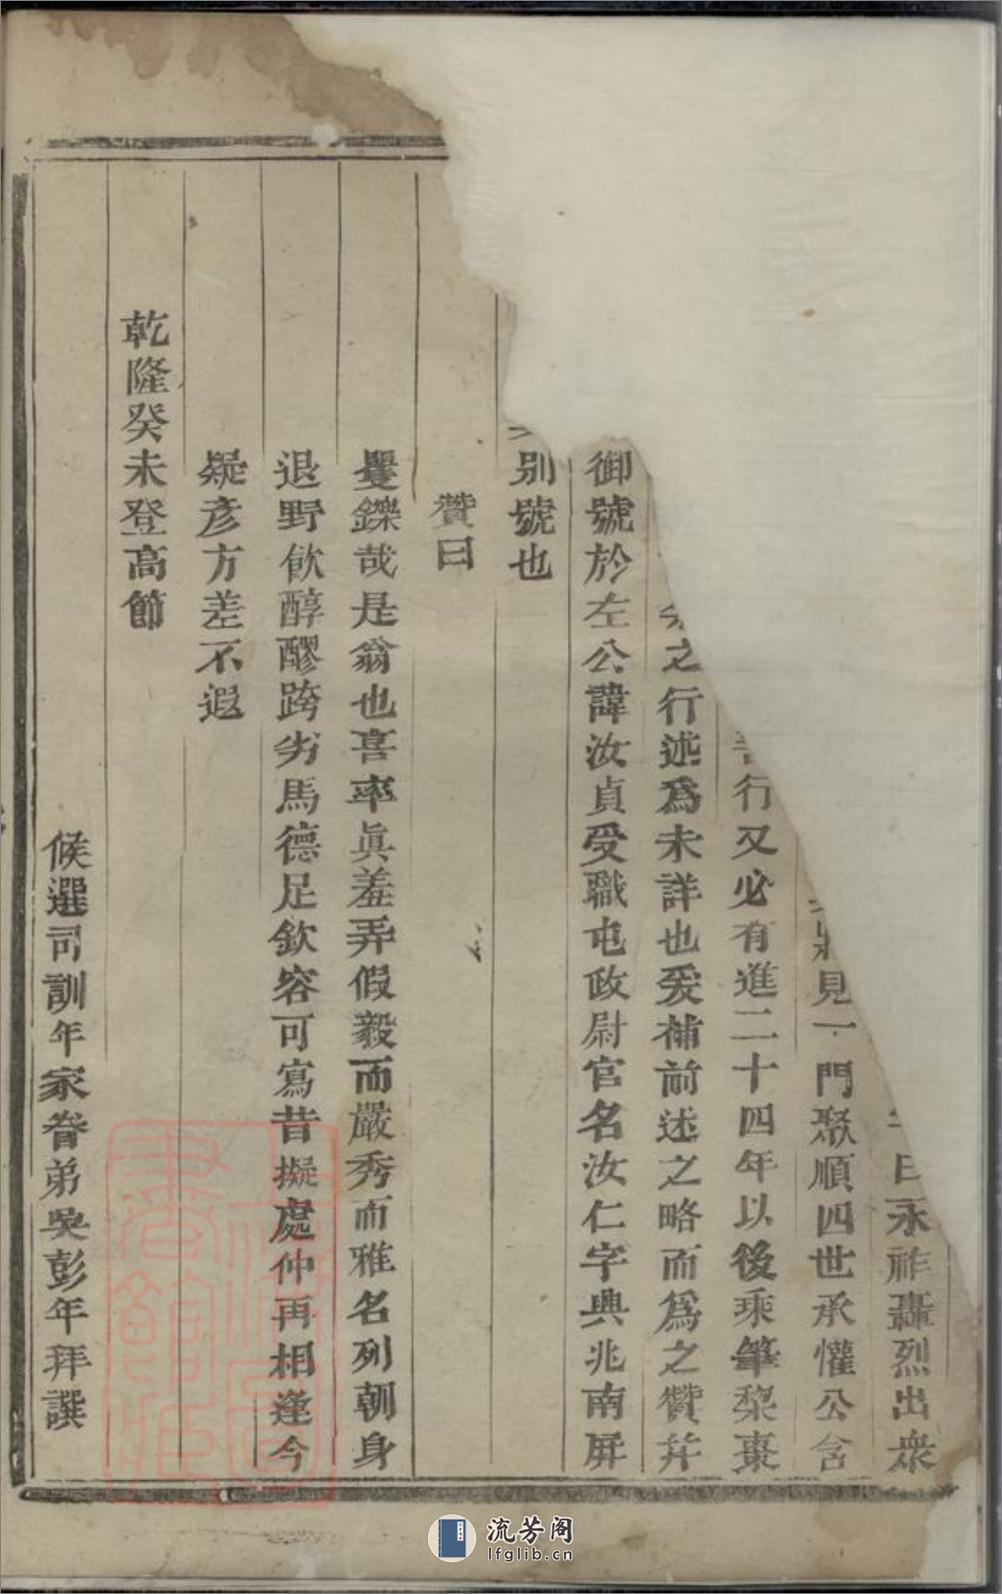 曰永祚轟烈出衆
見一門聚順四世承懽公含
行又必有進二十四年以後乘筆梨棗
之行述爲未詳也爰補前述之略而爲之贊并
御號於左公諱汝貞受職屯政尉官名汝仁字興兆南屏
別號也
贊曰
矍鑠哉是翁也喜率眞羞弄假毅而嚴秀而雅名列朝身
退野飲醇醪跨劣馬德足欽容可寫昔擬處仲再相逢今
疑彥方差不遐
乾隆癸未登高節
候選司訓年家眷弟吳彭年拜譔
流芳阁
lfglib.cn